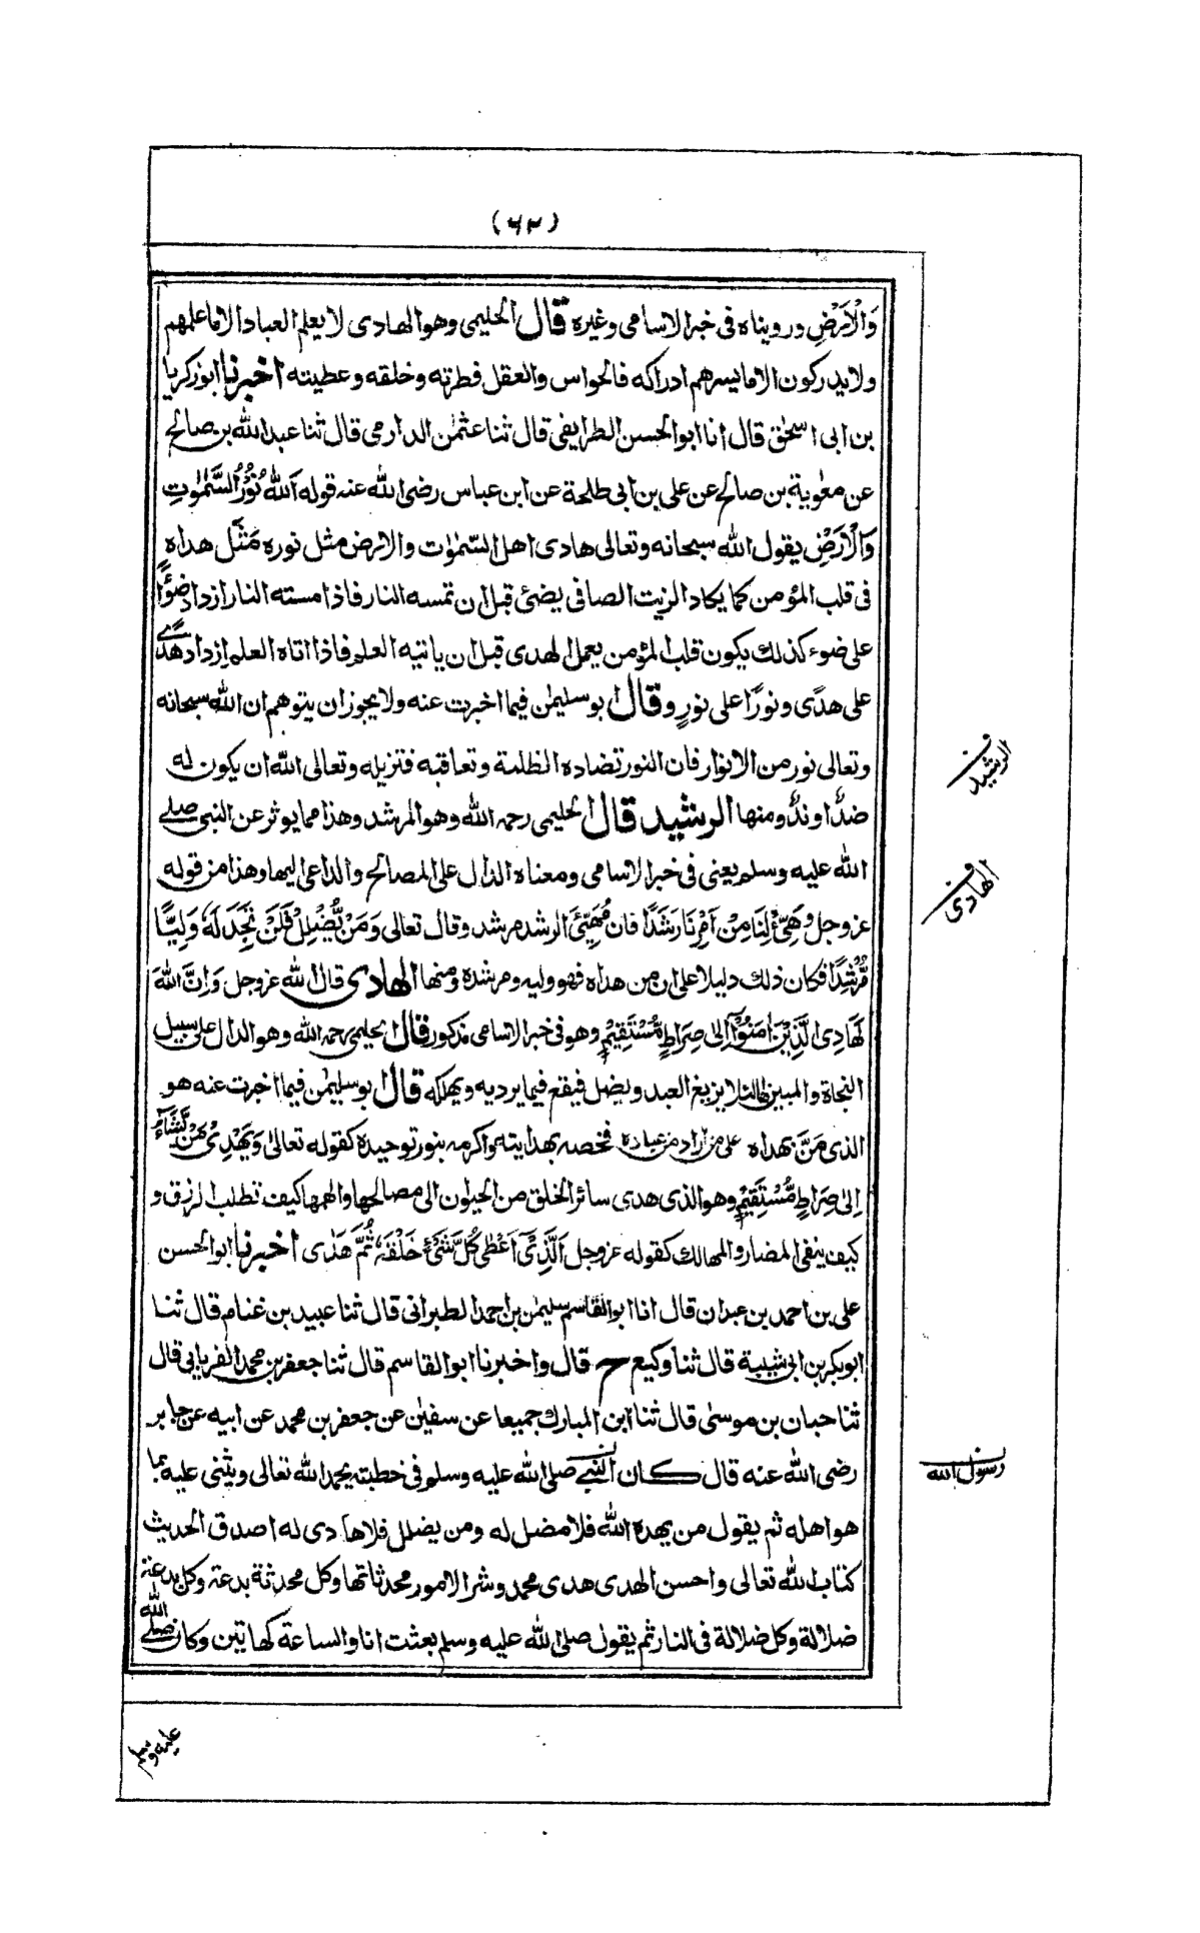 (٦٢)
وَالْاَرْضِ ورويناه فى خبر الاسامى وغيره قال الحليمى وهو الهادى لا يعلم العباد الا ما علمهم
ولا يدركون الا ما يسرهم ادراكه فالحواس والعقل فطرته وخلقه وعطيته اخبرنا ابو زكريا
بن ابى اسحٰق قال انا ابو الحسن الطرايفى قال ثنا عثمٰن الدارمى قال ثنا عبد الله بن صالح
عن معٰوية بن صالح عن على بن ابى طلحة عن ابن عباس رضى الله عنه قوله اَللّٰهُ نُوْرُ السَّمٰوٰتِ
وَالْاَرْضِ يقول الله سبحانه وتعالى هادى اهل السّمٰوٰت والارض مثل نوره مَثَل هداه
فى قلب المؤمن كما يكاد الزيت الصافى يضئ قبل ان تمسه النار فاذا مسته النار ازداد ضؤًا
على ضوء كذلك يكون قلب المؤمن يعمل الهدى قبل ان ياتيه العلم فاذا اتاه العلم ازداد هدًى
على هدًى ونورًا على نورٍ وقال ابو سليمٰن فيما اخبرت عنه ولا يجوز ان يتوهم ان الله سبحانه
وتعالى نور من الانوار فان النور تضاده الظلمة وتعاقبه فتزيله وتعالى الله ان يكون له
ضدٌّ او ندٌّ ومنها الرشيد قال الحليمى رحمه الله وهو المرشد وهذا مما يوثر عن النبى صلى
الله عليه وسلم يعنى فى خبر الاسامى ومعناه الدال على المصالح والداعى اليها وهذا من قوله
عز وجل وَهَيِّئْ لَنَا مِنْ اَمْرِنَا رَشَدًا فان مُهَيِّئَ الرشد مرشد وقال تعالى وَمَنْ يُّضْلِلْ فَلَنْ تَجِدَ لَهٗ وَلِيًّا
مُّرْشِدًا فكان ذلك دليلا على ان من هداه فهو وليه ومرشده ومنها الهادى قال الله عز وجل وَاِنَّ اللّٰهَ
لَهَادِى الَّذِيْنَ اٰمَنُوْٓا اِلٰى صِرَاطٍ مُّسْتَقِيْمٍ وهو فى خبر الاسامى مذكور قال الحليمى رحمه الله وهو الدال على سبيل
النجاة والمبين لها لئلا يزيغ العبد ويضل فيقع فيما يرديه ويهلكه قال ابو سليمٰن فيما اخبرت عنه هو
الذى مَنَّ بهداه على من اراد من عباده فخصه بهدايته واكرمه بنور توحيده كقوله تعالىٰ وَيَهْدِىْ مَنْ يَّشَآءُ
اِلٰى صِرَاطٍ مُّسْتَقِيْمٍ وهو الذى هدى سائر الخلق من الحيوان الى مصالحها والهمها كيف تطلب الرزق و
كيف ينفى المضار والمهالك كقوله عز وجل اَلَّذِىْٓ اَعْطٰى كُلَّ شَىْءٍ خَلْقَهٗ ثُمَّ هَدٰى اخبرنا ابو الحسن
على بن احمد بن عبدان قال انا ابو القاسم سليمٰن بن احمد الطبرانى قال ثنا عبيد بن غنام قال ثنا
ابو بكر بن ابى شيبة قال ثنا وكيع ح قال واخبرنا ابو القاسم قال ثنا جعفر بن محمد الفريابى قال
ثنا حبان بن موسىٰ قال ثنا ابن المبارك جميعا عن سفيٰن عن جعفر بن محمد عن ابيه عن جابر
رضى الله عنه قال كان النبى صلى الله عليه وسلم فى خطبته يحمد الله تعالى ويثنى عليه بما
هو اهله ثم يقول من يهده الله فلا مضل له ومن يضلل فلا هادى له اصدق الحديث
كتاب الله تعالى واحسن الهدى هدى محمد وشر الامور محدثاتها وكل محدثة بدعة وكل بدعة
ضلالة وكل ضلالة فى النار ثم يقول صلى الله عليه وسلم بعثت انا والساعة كهاتين وكان صلى الله
عليه وسلم
الرشيد
الهادى
رسول الله